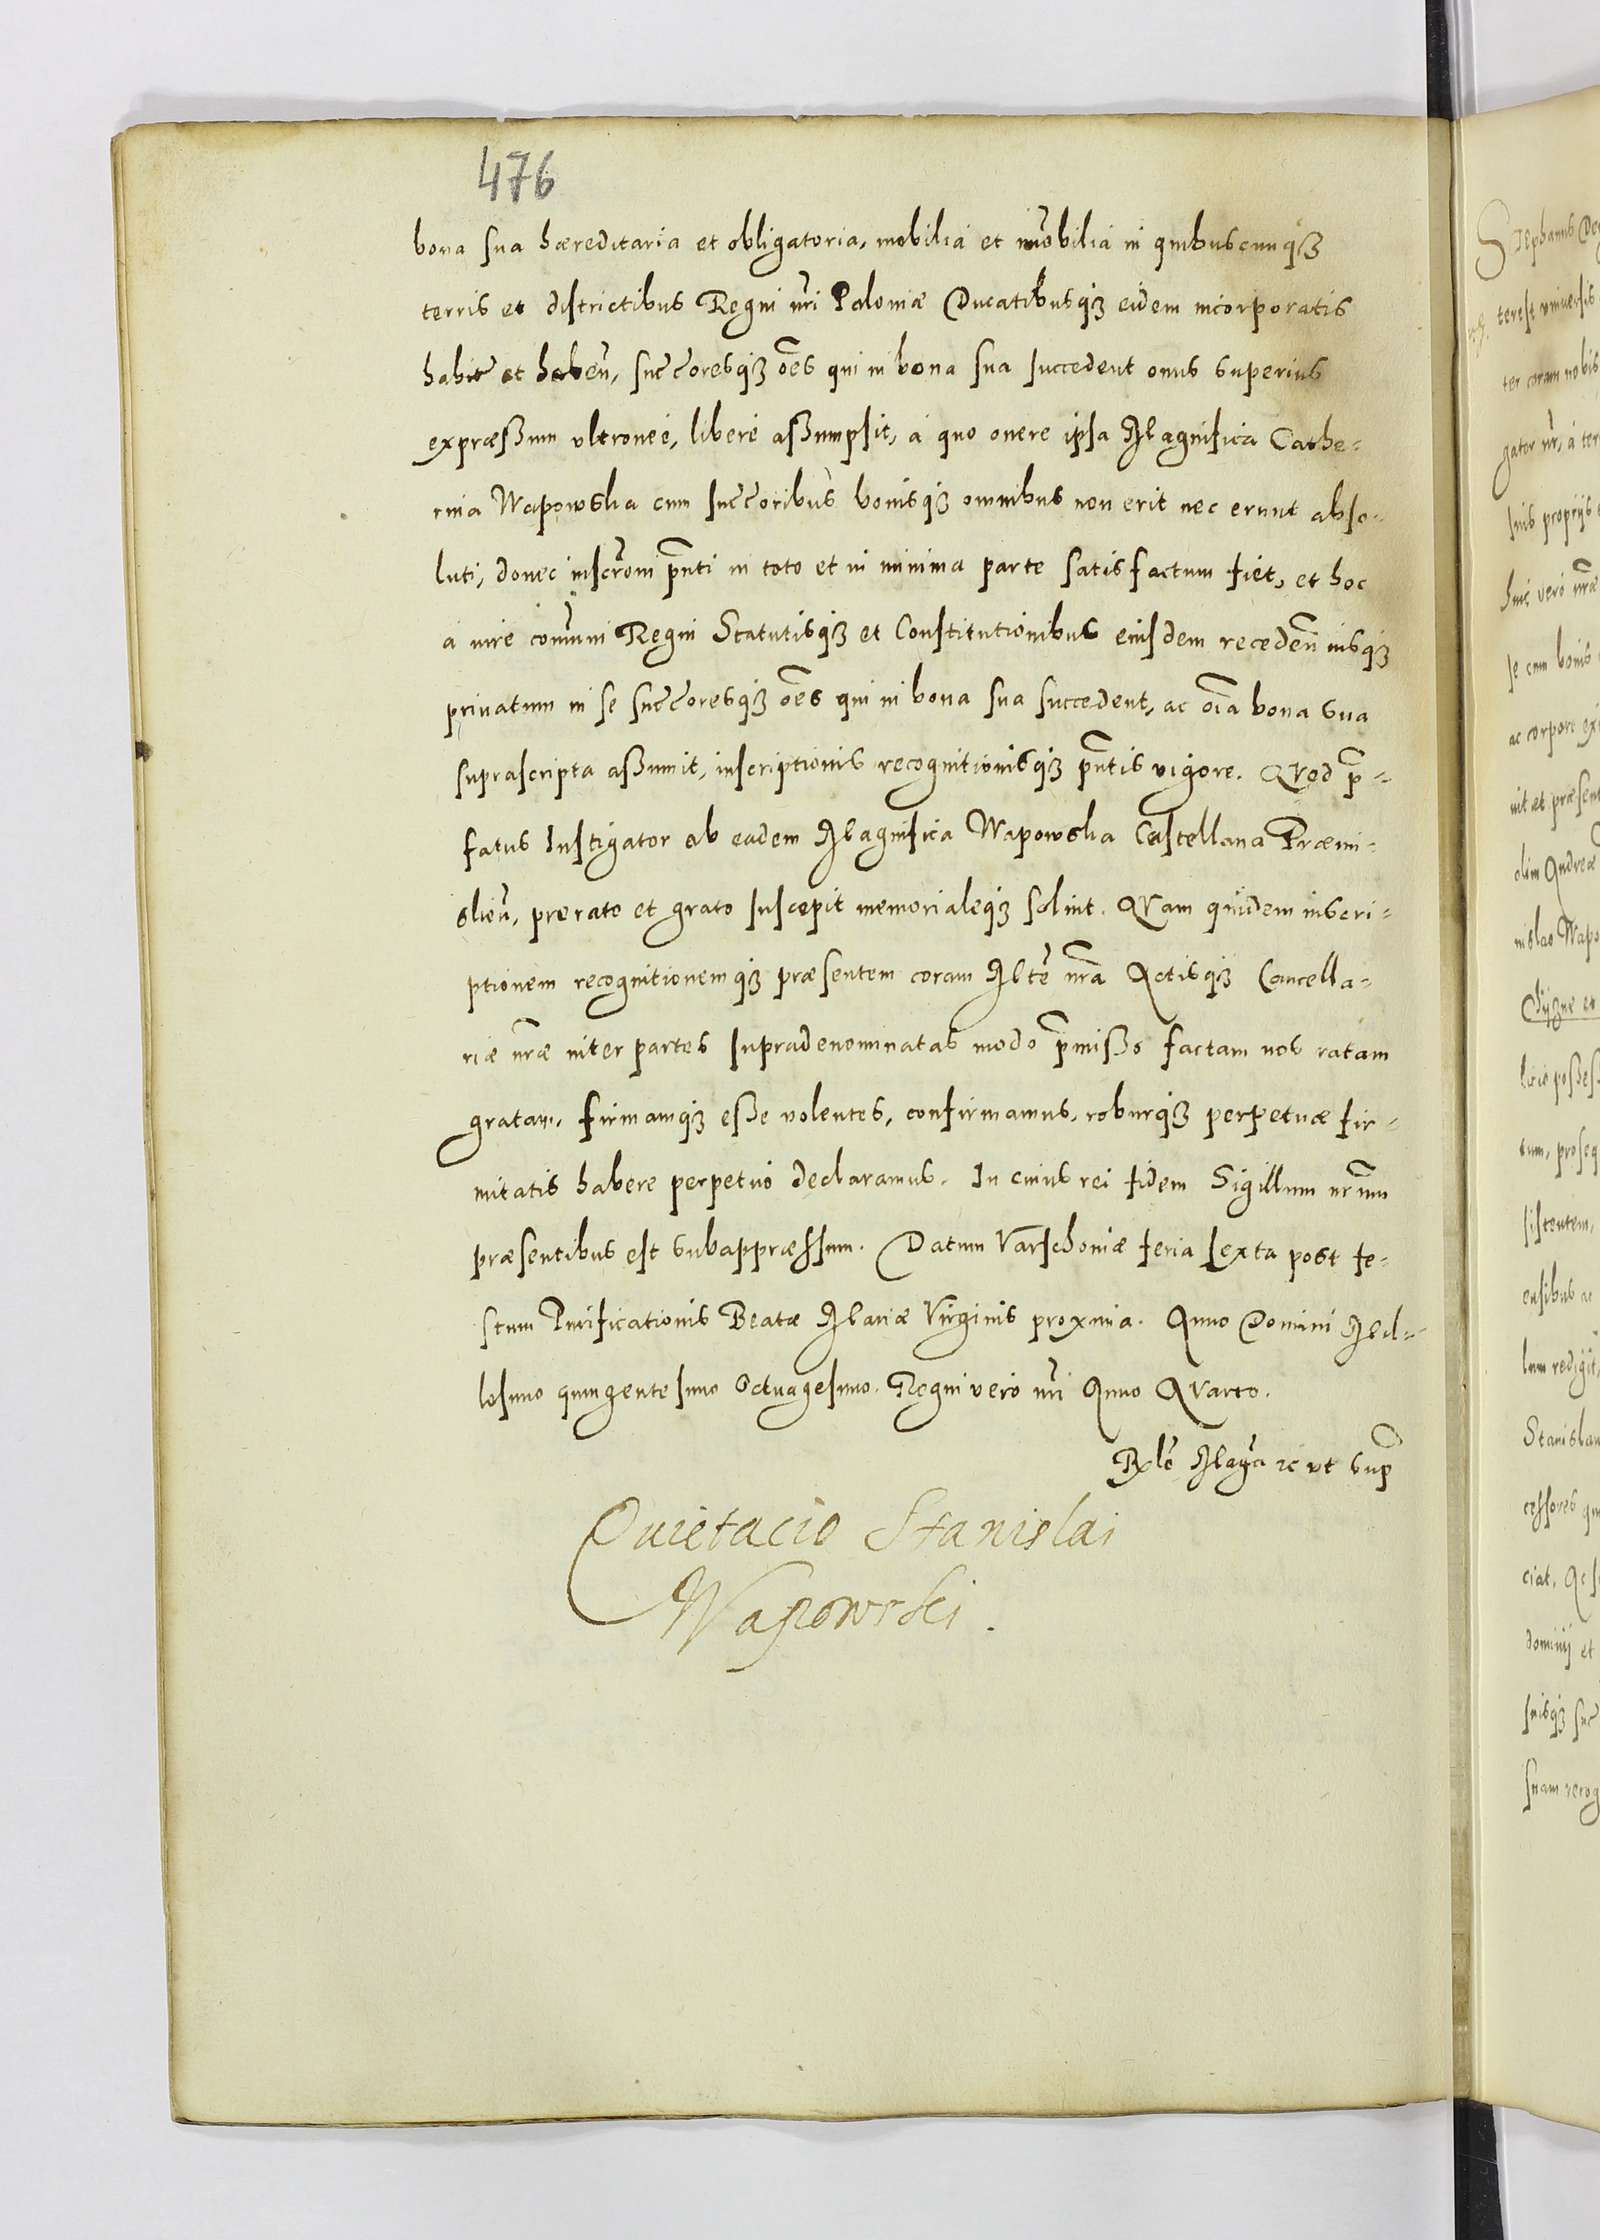 476
bona sua hæreditaria et obligatoria, mobilia et imobilia in quibuscunqȝ
terris et districtibus Regni nri Poloniæ Ducatibusqȝ eidem incorporatis
habit et haben, succoresqȝ oes qui in bona sua succedent onus superius
expræssum ultroneè, liberè assumpsit, à quo onere ipsa Magnifica Cathe-
rina Wapowska cum succoribus bonisqȝ omnibus non erit nec erunt abso-
luti, donec inscroni pnti in toto et in minima parte satisfactum fiet, et hoc
à iure comuni Regni Statutisqȝ et Constitutionibus eiusdem receden iusqȝ
priuatum in se succoresqȝ oes qui in bona sua succedent, ac oia bona sua
suprascripta assumit, inscriptionis recognitionisqȝ pntis vigore. Quod p-
fatus Instigator ab eadem Magnifica Wapowska Castellana Præmi-
slien, præ rato et grato suscepit memorialeqȝ soluit. Quam quidem inscri-
ptionem recognitionemqȝ præsentem coram Mte nra Actisqȝ Cancella-
riæ nræ inter partes supradenominatas modo pmisso factam nos ratam
gratam, firmamqȝ esse volentes, confirmamus, roburqȝ perpetuæ fir-
mitatis habere perpetuò declaramus. In cuius rei fidem Sigillum nrum
præsentibus est subappræssum. Datum Varschoniæ feria sexta post fe-
stum Purificationis Beatæ Mariæ Virginis proxima. Anno Domini Mil-
lesimo quingentesimo Octuagesimo. Regni vero nri Anno Quarto.
Rlo Magci ꝛc ut sup
Quietacio Stanislai
Wapowski.
Stephanus
terest universis
ter coram nobis
gator nr, à
suis proprijs
huic vero nræ
se cum bonis
ac corpore
olim Andreæ
nislao
tum,
sistentem,
ensibus ac
lum redigit,
cessores
ciat,
dominij et
suisqȝ
suam